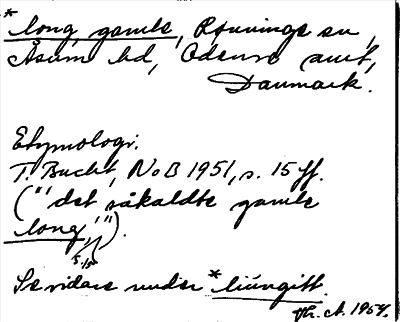 * long gamle, Rønninge sn,
Åsum hd, Odense amt,
Danmark.
Etymologi.
T. Bucht, NoB 1951, s. 15 ff.
("det såkaldte gamle
long").
Se vidare under *liúngitt.
1954.